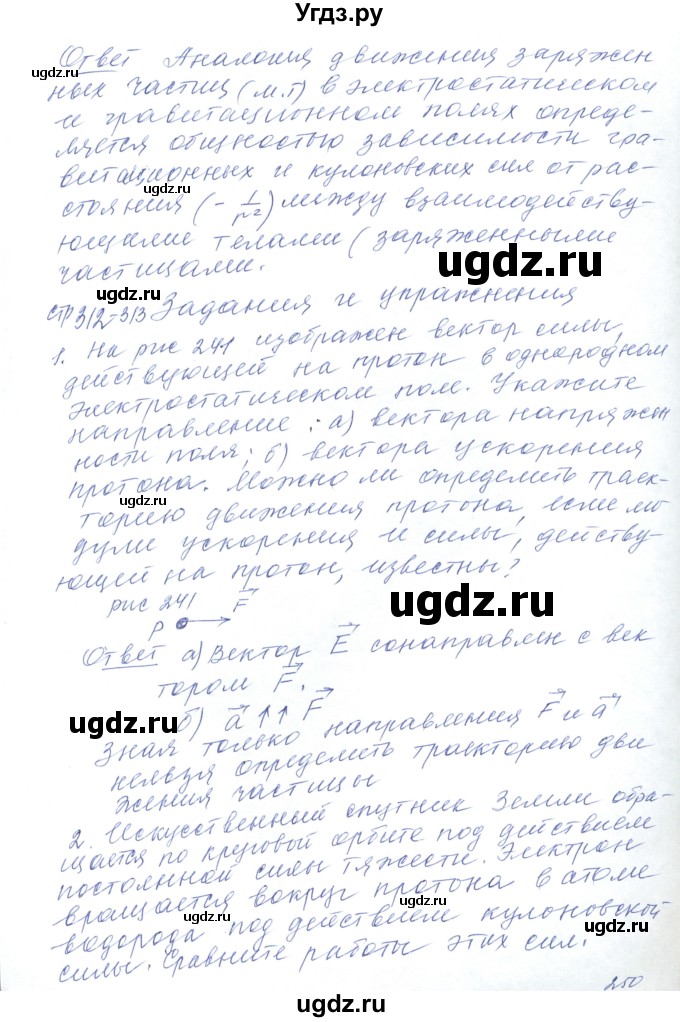 Угдз.ру
Ответ Аналогия движения заряжен
ных частиц (м.т) в электростатическом
и гравитационном полях опреде-
ляется общностью зависимости гра-
витационных и кулоновских сил от рас-
стояния (- 1/r²) между взаимодейству-
ющими телами (заряженными
частицами.
стр 312-313 Задания и упражнения
1. На рис 241 изображен вектор силы,
действующей на протон в однородном
электростатическом поле. Укажите
направление: а) вектора напряжен
ности поля; б) вектора ускорения
протона. Можно ли определить траек-
торию движения протона, если мо
дули ускорения и силы, действу-
ющей на протон, известны?
рис 241 F
P
Ответ а) Вектор E сонаправлен с век
тором F.
б) a ↑↑ F
Зная только направления F и a
нельзя определить траекторию дви
жения частицы
2. Искусственный спутник Земли обра-
щается по круговой орбите под действием
постоянной силы тяжести. Электрон
вращается вокруг протона в атоме
водорода под действием кулоновской
силы. Сравните работы этих сил.
250
ugdz.ru
ugdz.ru
ugdz.ru
ugdz.ru
ugdz.ru
ugdz.ru
ugdz.ru
ugdz.ru
ugdz.ru
ugdz.ru
ugdz.ru